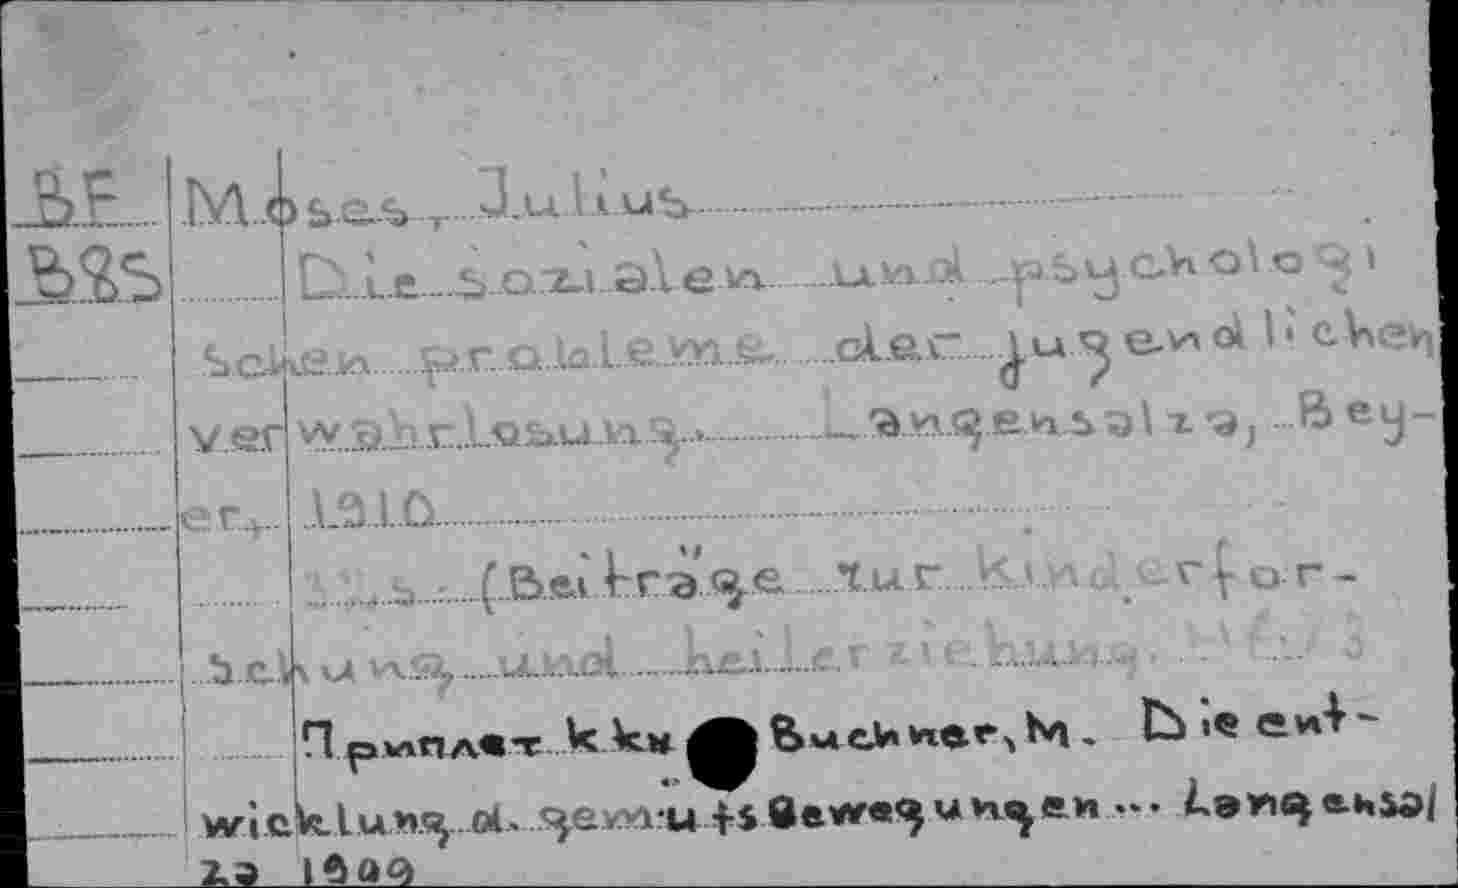 BF Moses, Julius
Die sozialen und psychologi
schen probleme der jugendlichen
verwahrlosung. Langensalza, Bey-
er, 1910
(Beiträge zur Kinderfor-
schung und heilerziehung.
Приплет к кн Buchner, M. Die ent-
wicklung d. gemüts bewegungen... Langensal
za 1909